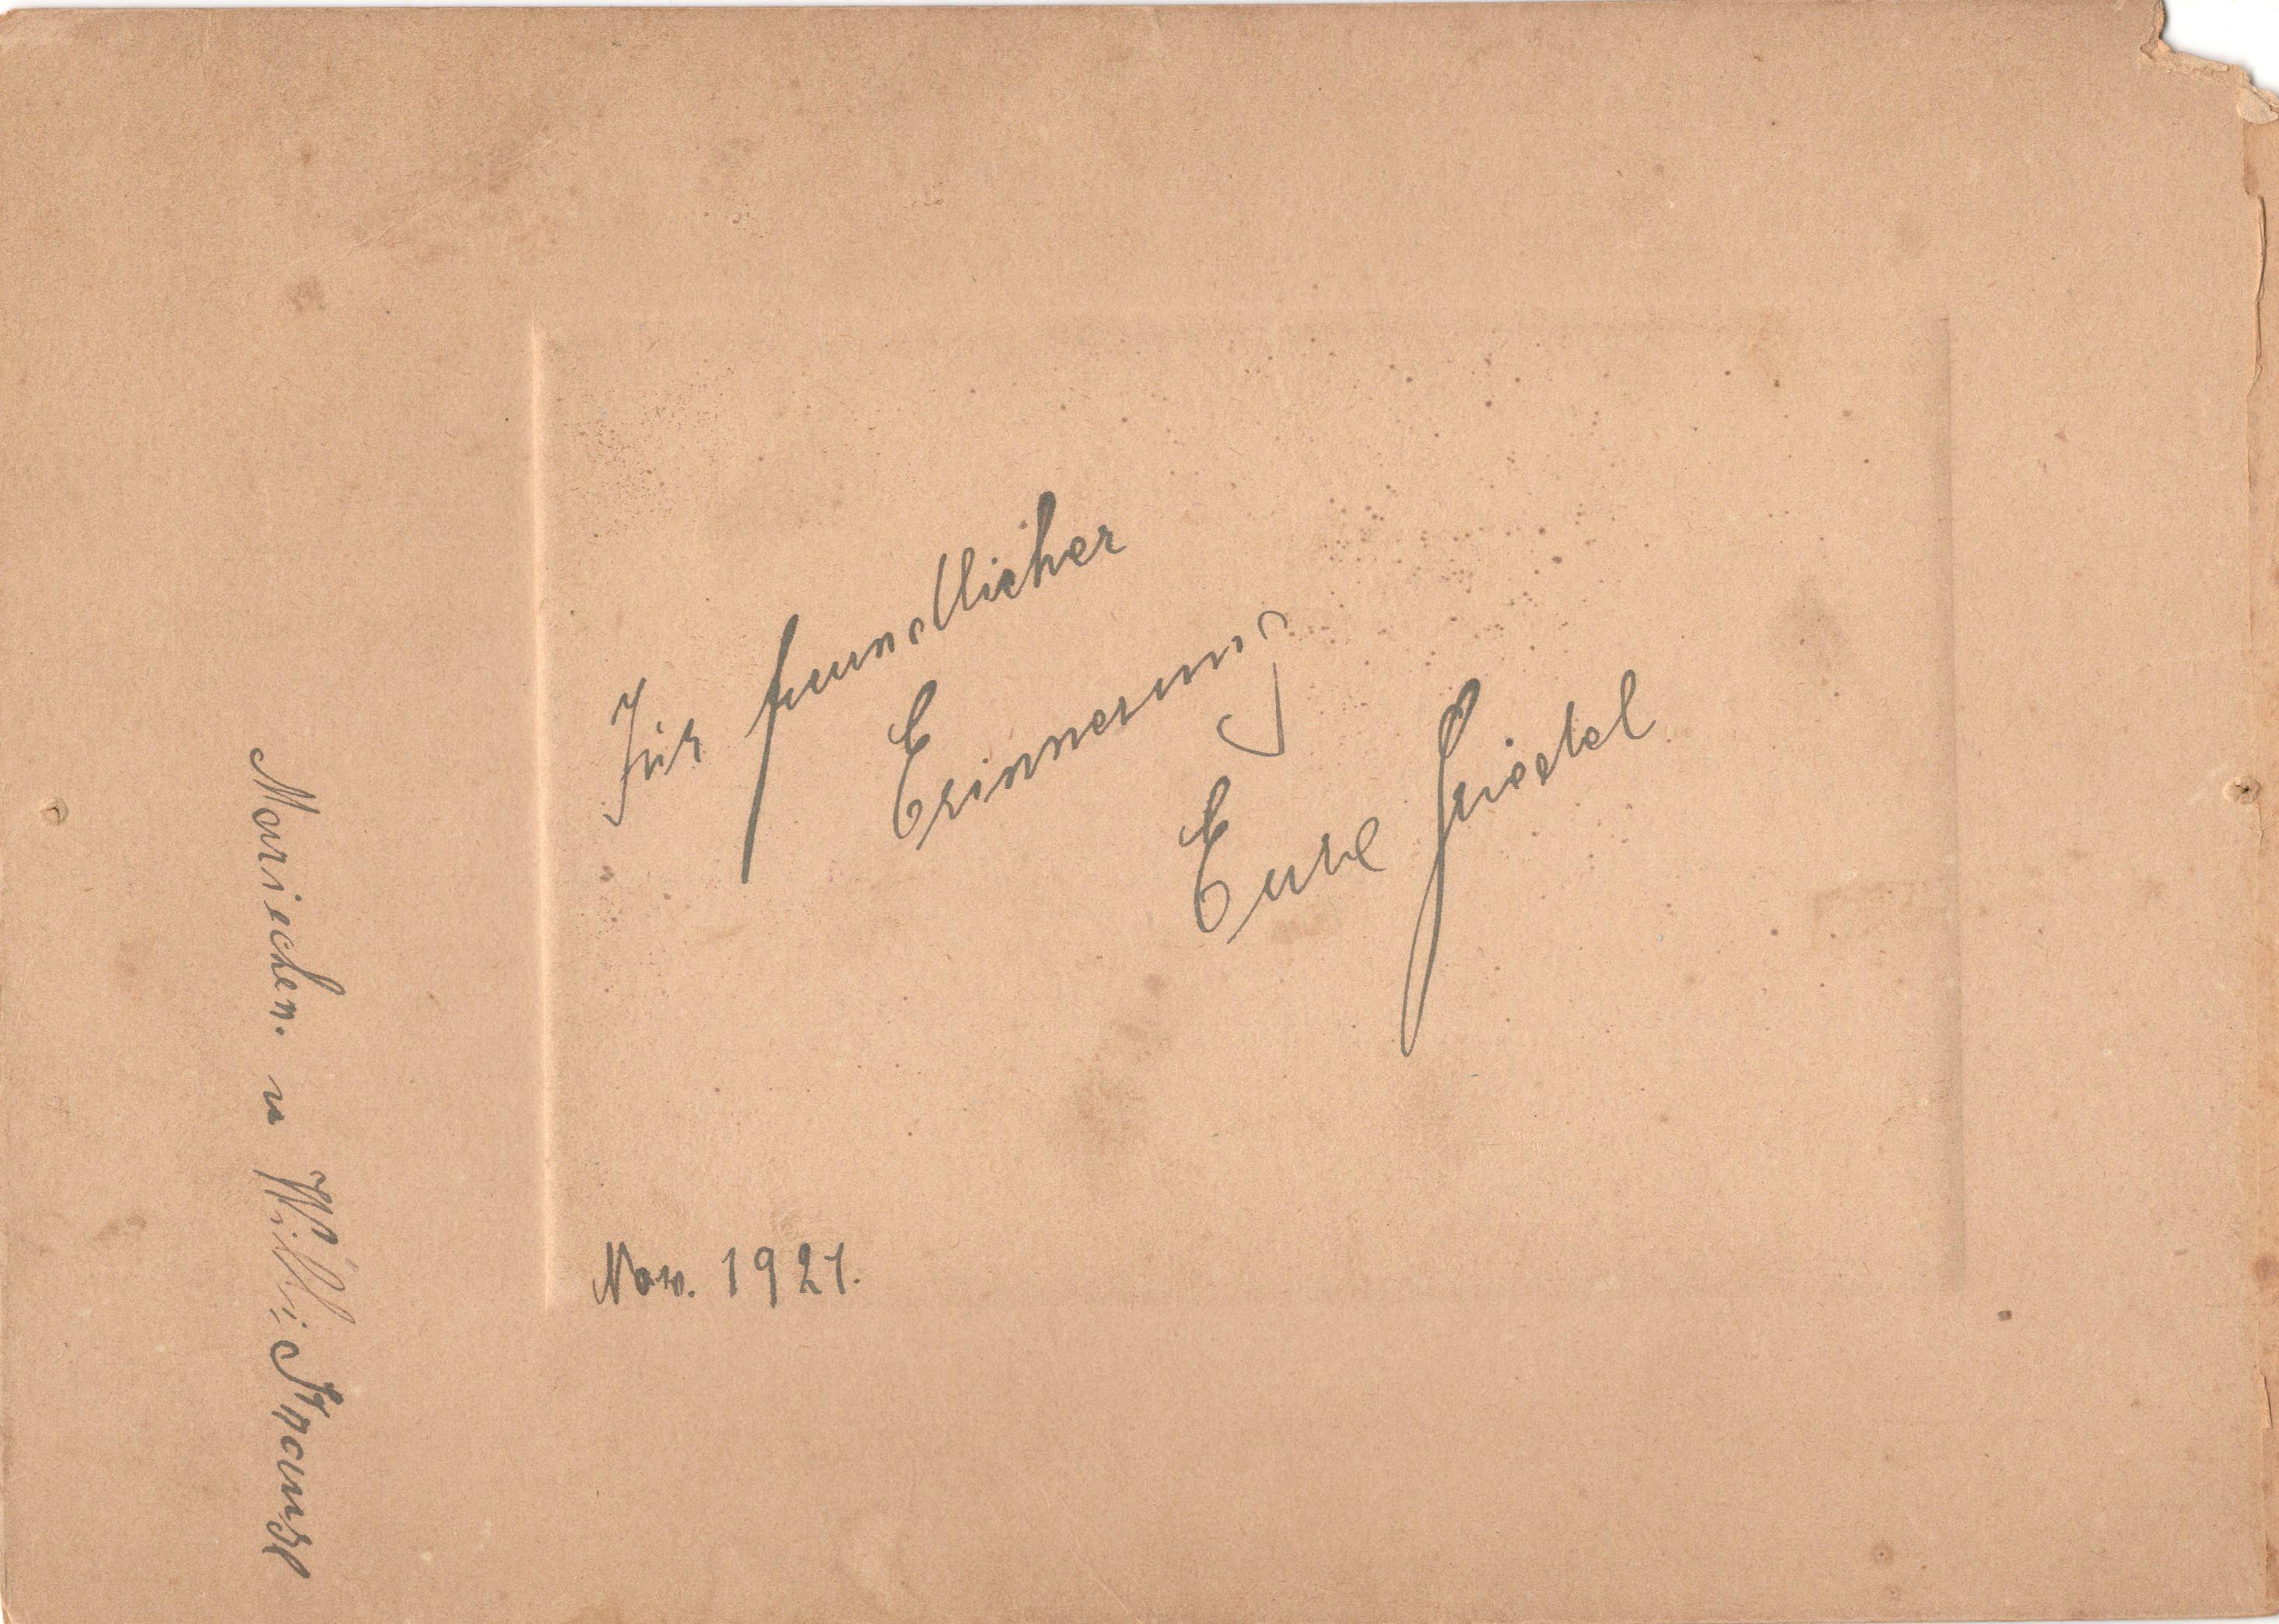 Zur freundlicher
Erinnerung
Eure Friedel
Nov. 1921.
Mariechen. u Willi